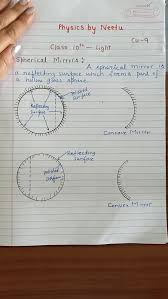 Physics by Neetu
Ch-9
Class 10th - Light
Spherical Mirrors :
A spherical mirror is
a reflecting surface which forms part of
a hollow glass sphere.
Reflecting
Surface
polished
Surface
Concave Mirror
Reflecting
Surface
polished
Surface
Convex Mirror